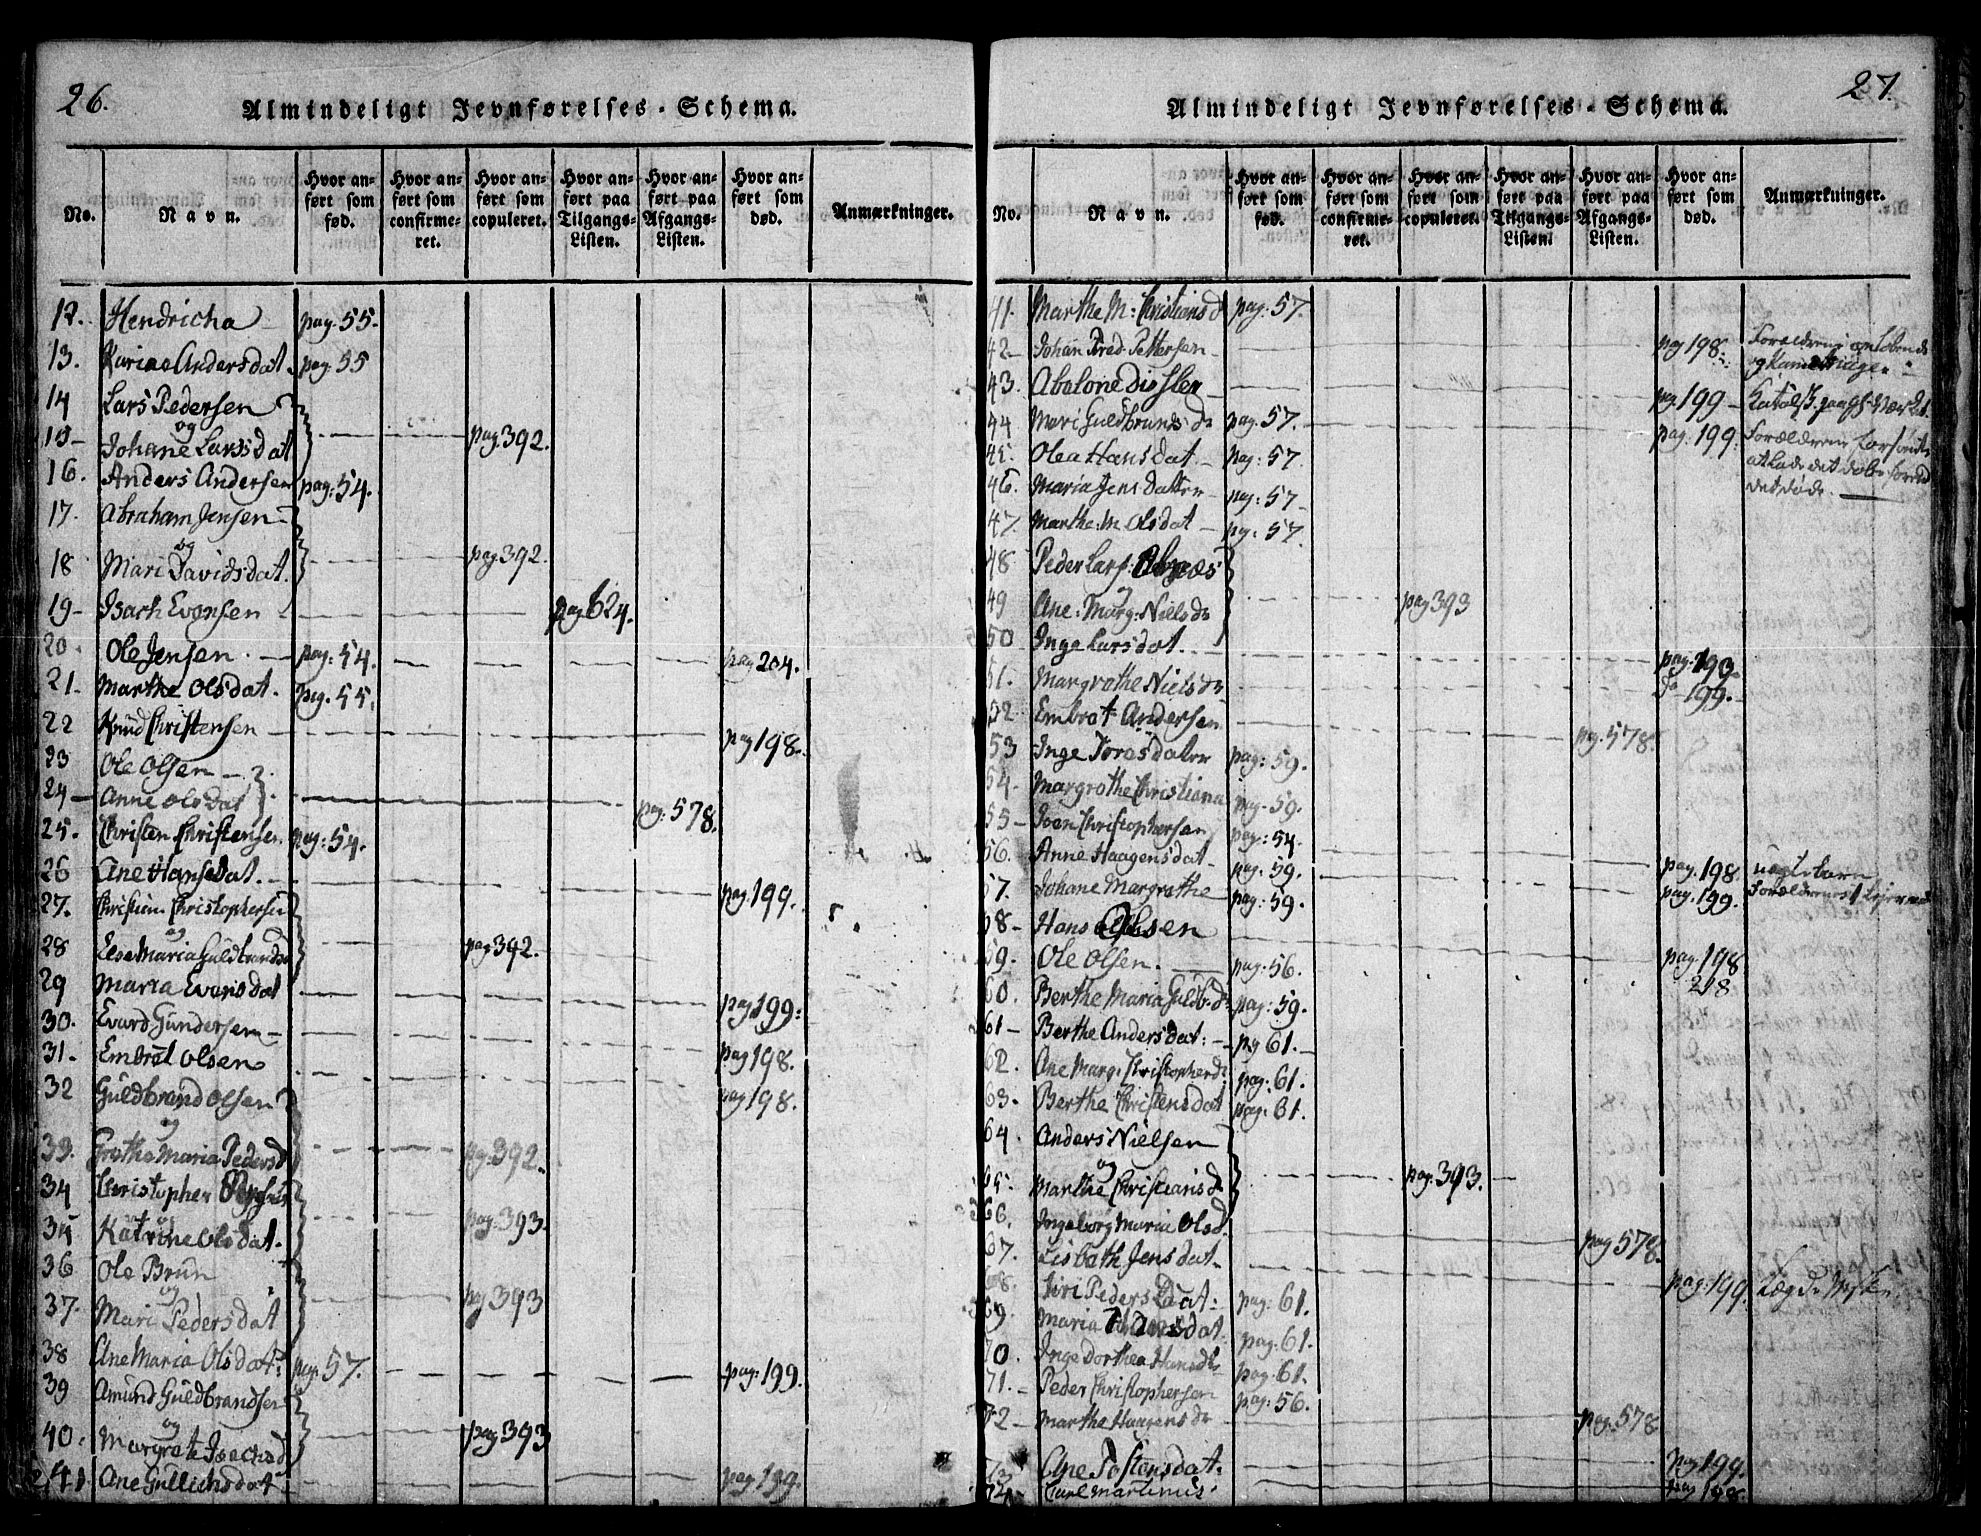 26.
Almindeligt Jevnførelses-Schema.
No.
Navn.
Hvor an-
ført som
fød.
Hvor an-
ført som
confirme-
ret.
Hvor an-
ført som
copuleret.
Hvor an-
ført paa
Tilgangs-
Listen.
Hvor an-
ført paa
Afgangs-
Listen.
Hvor an-
ført som
død.
Anmærkninger.
12. Hendricha pag. 55.
13. Andersdat. pag. 55
14 Lars Pedersen
og
15 Johane Larsdat pag. 392.
16. Anders Andersen pag. 54.
17. Abraham Jensen
og
18 Mari Davidsdat. pag. 392.
19 Isach Evensen pag. 624.
20. Ole Jensen. pag. 54. pag 204.
21. Marthe Olsdat. pag. 55.
22 Knud Christensen pag 198.
23 Ole Olsen
24 Anne Olsdat pag. 578.
25. Christen Christensen pag: 54.
26 Ane Hansdat. pag 199.
27. Christian Christophersen
og
28 Else Maria Guldbrandsd pag. 392.
29 Maria Evensdat pag 199.
30. Evard Gundersen pag 198.
31. Embret Olsen pag 198.
32 Guldbrand Olsen
og
33. Grethe Maria Pedersd pag. 392.
34 Christopher
35 Katrine Olsdat. pag. 393.
36 Ole Brun
og
37. Mari Pedersdat pag 393
38 Ane Maria Olsdat: pag. 57. pag. 199.
39 Amund Guldbrandsen
og
40. Margrate Isachsd pag 393
241. Ane Gullichsdat pag 199.
27.
Almindeligt Jevnførelses-Schema.
No.
Navn.
Hvor an-
ført som
fød.
Hvor an-
ført som
confirme-
ret.
Hvor an-
ført som
copuleret.
Hvor an-
ført paa
Tilgangs-
Listen.
Hvor an-
ført paa
Afgangs-
Listen.
Hvor an-
ført som
død.
Anmærkninger.
41. Marthe M: Christiansd pag. 57.
42 Johan Fred. Pettersen pag 198. Forældrene
43. Abelone Dissler pag. 199
44 Mari Guldbrandsdr pag. 57. pag. 199. Forældrene
45. Olea Hansdat. pag: 57.
46. Maria Jensdatter pag: 57
47. Marthe M. Olsdat pg. 57.
48 Peder Lars:
og
49 Ane: Marg: Nielsdr pag 393
50 Inge Larsdat. pag. 193.
51. Margrethe Nielsdr 199.
52 Embret Andersen pag. 578.
53 Inge pag: 59.
54. Margrethe Christiana pag. 59.
55 Christophersen pag: 54.
56. Anne Haagensdat. pag. 59. pag. 198
57. Johane Margrethe pag: 59. pag. 199. Forældrenes
58 Hans Olsen pag. 198
59. Ole Olsen. pag. 56. 218
60. Berthe Maria Guldb.dr pag: 59.
61 Berthe Andersdat: pg 61.
62. Ane Marg: Christopherdr pag: 61.
63. Berthe Christensdat pag. 61.
64. Anders Nielsen
og
65. Marthe Christiansdr pag. 393.
66. Ingeborg Maria Olsd. pag 578.
67. Lisbeth Jensdat. pag. 199. Lægd
68. Siri Pedersdat: pag: 61.
69. Maria Hansdat. pag. 61.
70. Inge Dorthea Hansdr pag: 61.
71. Peder Christophersen pag: 56.
72 Marthe Haagensdr pag. 578
73 Ane Tostensdat. pag 199.
74 Carl Martinus. pag 198.